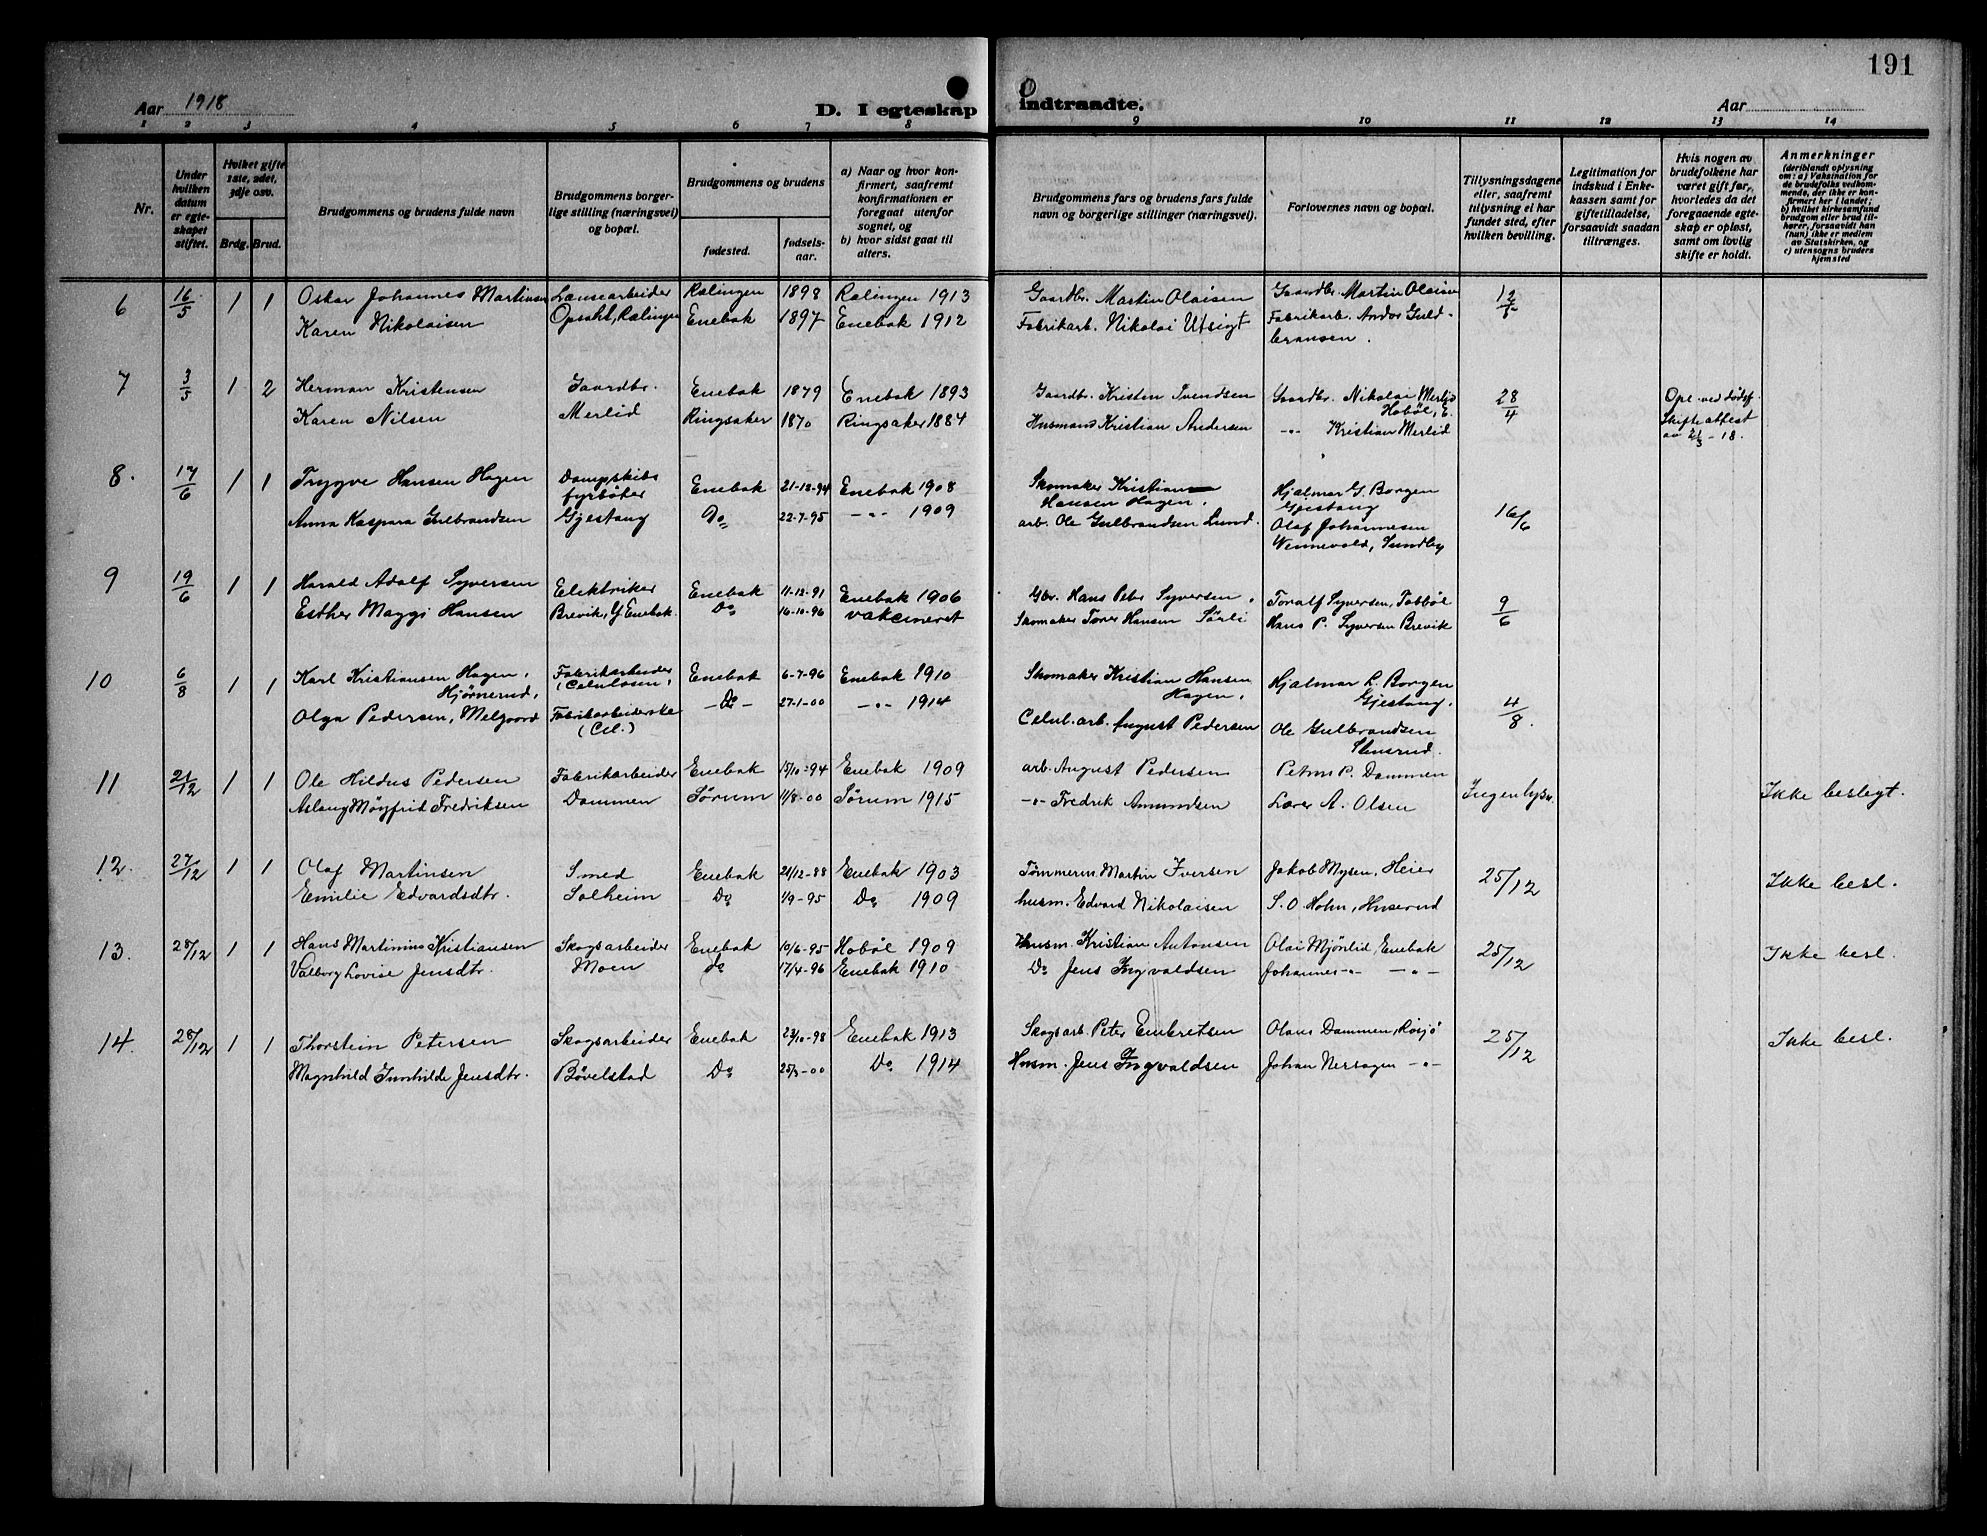 191
Aar 1918
D. I egteskap indtraadte.
Aar
1 2 3 4 5 6 7 8 9 10 11 12 13 14
Nr.
Under hvilken datum er egteskapet stiftet.
Hvilket gifte 1ste, 2det, 3dje osv.
Brdg. Brud.
Brudgommens og brudens fulde navn
Brudgommens borgerlige stilling (næringsvei) og bopæl.
Brudgommens og brudens
fødested.
fødselsaar.
a) Naar og hvor konfirmert, saafremt konfirmationen er foregaat utenfor sognet, og
b) hvor sidst gaat til alters.
Brudgommens fars og brudens fars fulde navn og borgerlige stillinger (næringsvei).
Forlovernes navn og bopæl.
Tillysningsdagene eller, saafremt tillysning ei har fundet sted, efter hvilken bevilling.
Legitimation for indskud i Enkekassen samt for giftetilladelse, forsaavidt saadan tiltrænges.
Hvis nogen av brudefolkene har været gift før, hvorledes da det foregaaende egteskap er opløst, samt om lovlig skifte er holdt.
Anmerkninger
(deriblandt oplysning om: a) Vaksination for de brudefolks vedkommende, der ikke er konfirmert her i landet; b) hvilket kirkesamfund brudgom eller brud tilhører, forsaavidt han (hun) ikke er medlem av Statskirken, og c) utensogns bruders hjemsted
6 16/5 1 1 Oskar Johannes Martinsen Lænsearbeider Rælingen 1898 Rælingen 1913 Gaardbr. Martin Olaisen Gaardbr. Martin Olaisen 12/5
Karen Nikolaisen Opsahl, Rælingen Enebak 1897 Enebak 1912 Fabrikarb. Nikolai Utsigt Fabrikarb. Andor Guldbransen.
7 3/5 1 2 Herman Kristensen Gaardbr. Enebak 1879 Enebak 1893 Gaardbr. Kristen Svendsen Gaardbr. Nikolai Merlid Hobøl, E. 28/4 Opl. ved dødsf.
Karen Nilsen Merlid Ringsaker 1870 Ringsaker 1884 Husmand Kristian Andersen -"- Kristian Merlid Skifteattest av 2/3 - 18.
8. 17/6 1 1 Trygve Hansen Hagen Dampskibs fyrbøter Enebak 21-12-94 Enebak 1908 Skomaker Kristian Hansen Hagen. Hjalmar G. Borgen Gjestang 16/6
Anna Kaspara Gulbrandsen Gjestang Do 22-7-95 -"- 1909 arb. Ole Gulbrandsen Lund. Olaf Johannesen Wennevold, Sundby
9 19/6 1 1 Harald Adolf Syversen Elektriker Enebak 11-12-91 Enebak 1906 Gbr. Hans Peter Syversen. Toralf Syversen, Tobbøl 9/6
Esther Maggi Hansen Brevik, Y. Enebak. Do 16-10-96 vakcineret Skomaker Torer Hansen Sørli Hans P. Syversen Brevik
10 6/8 1 1 Karl Kristiansen Hagen, Hjørnerud, Fabrikarbeider (Celulosen) Enebak 6-7-96 Enebak 1910 Skomaker Kristian Hansen Hagen. Hjalmar L. Borgen Gjestang. 4/8.
Olga Pedersen, Melgaard Fabrikarbeiderske (Cel.) -Do- 27-1-00 -"- 1914 Celul.arb. August Pedersen Ole Gulbrandsen Stensrud.
11 21/12 1 1 Ole Hildus Pedersen Fabrikarbeider Enebak 15/10-94 Enebak 1909 arb. August Pedersen Petrus P. Dammen Ingen lysn. Ikke beslegt.
Aslaug Møyfrid Fredriksen Dammen Sørum 11/8-00 Sørum 1915 -"- Fredrik Amundsen Lærer A. Olsen
12. 27/12 1 1 Olaf Martinsen Smed Enebak 21/12-88 Enebak 1903 Tømmerm. Martin Iversen Jakob Mysen, Heier 25/12 Ikke besl.
Emilie Edvardsdtr. Solheim Do 1/9-95 Do 1909 husm. Edvard Nikolaisen S. O. Holm, Huserud
13. 28/12 1 1 Hans Martinius Kristiansen Skogsarbeider Enebak 10/6-95 Hobøl 1909 Husm. Kristian Antonsen Olai Mjønlid, Enebak 25/12 Ikke besl.
Valborg Lovise Jensdtr. Moen do 17/4-96 Enebak 1910 Do Jens Ingvaldsen Johannes -"- -"-
14. 28/12 1 1 Thorstein Petersen Skogsarbeider Enebak 23/10-98 Enebak 1913 Skogsarb. Peter Embretsen Olaus Dammen, Røsjø 25/12 Ikke besl.
Magnhild Gunhilde Jensdtr. Bøvelstad Do 25/3-00 Do 1914 Husm. Jens Ingvaldsen Johan Nerhagen -"-